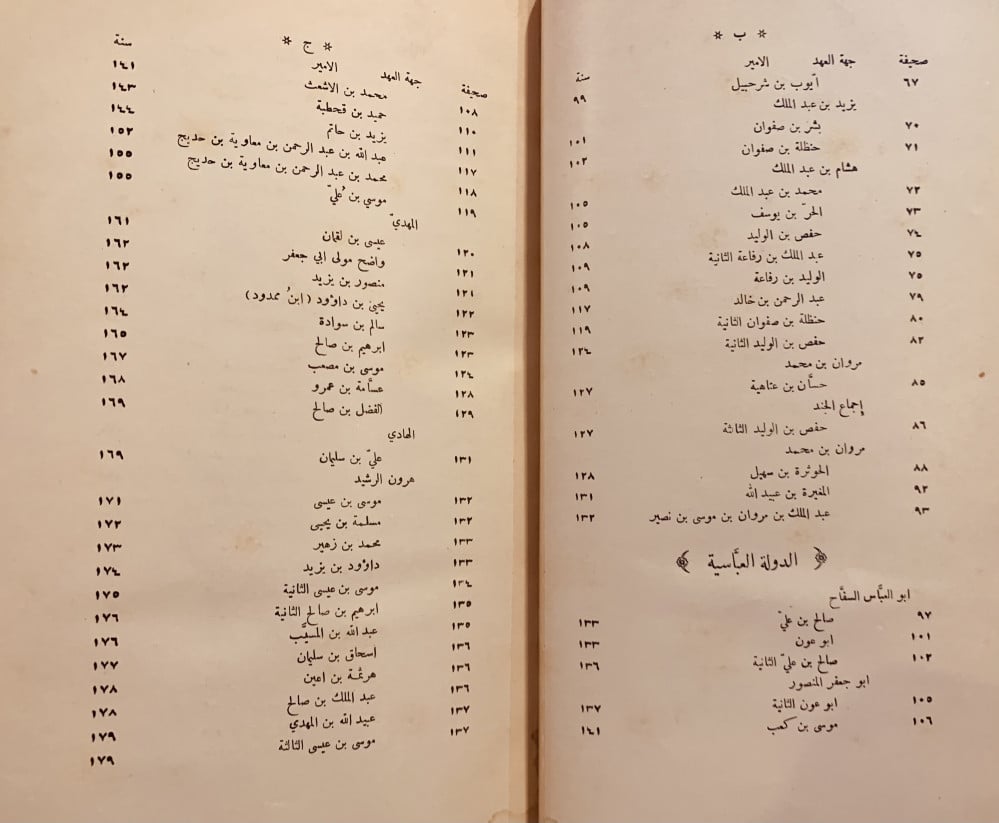 * ب *
صحيفة جهة العهد الامير سنة
٦٧ أيّوب بن شرحبيل ٩٩
يزيد بن عبد الملك
٧٠ بشر بن صفوان ١٠١
٧١ حنظلة بن صفوان ١٠٢
هشام بن عبد الملك
٧٢ محمد بن عبد الملك ١٠٥
٧٣ الحرّ بن يوسف ١٠٥
٧٤ حفص بن الوليد ١٠٨
٧٥ عبد الملك بن رفاعة الثانية ١٠٩
٧٥ الوليد بن رفاعة ١٠٩
٧٩ عبد الرحمن بن خالد ١١٧
٨٠ حنظلة بن صفوان الثانية ١١٩
٨٢ حفص بن الوليد الثانية ١٢٤
مروان بن محمد
٨٥ حسّان بن عتاهية ١٢٧
إجماع الجند
٨٦ حفص بن الوليد الثالثة ١٢٧
مروان بن محمد
٨٨ الحوثرة بن سهيل ١٢٨
٩٢ المغيرة بن عبيد الله ١٣١
٩٣ عبد الملك بن مروان بن موسى بن نصير ١٣٢
﴿ الدولة العبّاسية ﴾
ابو العبّاس السفّاح
٩٧ صالح بن عليّ ١٣٣
١٠١ ابو عون ١٣٣
١٠٢ صالح بن عليّ الثانية ١٣٦
ابو جعفر المنصور
١٠٥ ابو عون الثانية ١٣٧
١٠٦ موسى بن كعب ١٤١
* ج *
صحيفة جهة العهد الامير سنة
١٠٨ محمد بن الاشعث ١٤١
١١٠ حميد بن قحطبة ١٤٣
١١١ يزيد بن حاتم ١٤٤
١١٧ عبد الله بن عبد الرحمن بن معاوية بن حديج ١٥٢
١١٨ محمد بن عبد الرحمن بن معاوية بن حديج ١٥٥
١١٩ موسي بن عُليّ ١٥٥
المهديّ
١٢٠ عيسى بن لقمان ١٦١
١٢١ واضح مولى ابي جعفر ١٦٢
١٢١ منصور بن يزيد ١٦٢
١٢٢ يحيى بن داوُود (ابنُ ممدود) ١٦٢
١٢٣ سالم بن سوادة ١٦٤
١٢٣ ابرهيم بن صالح ١٦٥
١٢٤ موسى بن مصعب ١٦٧
١٢٨ عسّامة بن عمرو ١٦٨
١٢٩ الفضل بن صالح ١٦٩
الهادي
١٣١ عليّ بن سليمان ١٦٩
هرون الرشيد
١٣٢ موسى بن عيسى ١٧١
١٣٢ مسلمة بن يحيى ١٧٢
١٣٣ محمد بن زهير ١٧٣
١٣٣ داوُود بن يزيد ١٧٤
١٣٤ موسى بن عيسى الثانية ١٧٥
١٣٥ ابرهيم بن صالح الثانية ١٧٦
١٣٥ عبد الله بن المسيَّب ١٧٦
١٣٦ اسحاق بن سليمان ١٧٧
١٣٦ هرثمة بن اعين ١٧٨
١٣٦ عبد الملك بن صالح ١٧٨
١٣٧ عبيد الله بن المهدي ١٧٩
١٣٧ موسى بن عيسى الثالثة ١٧٩